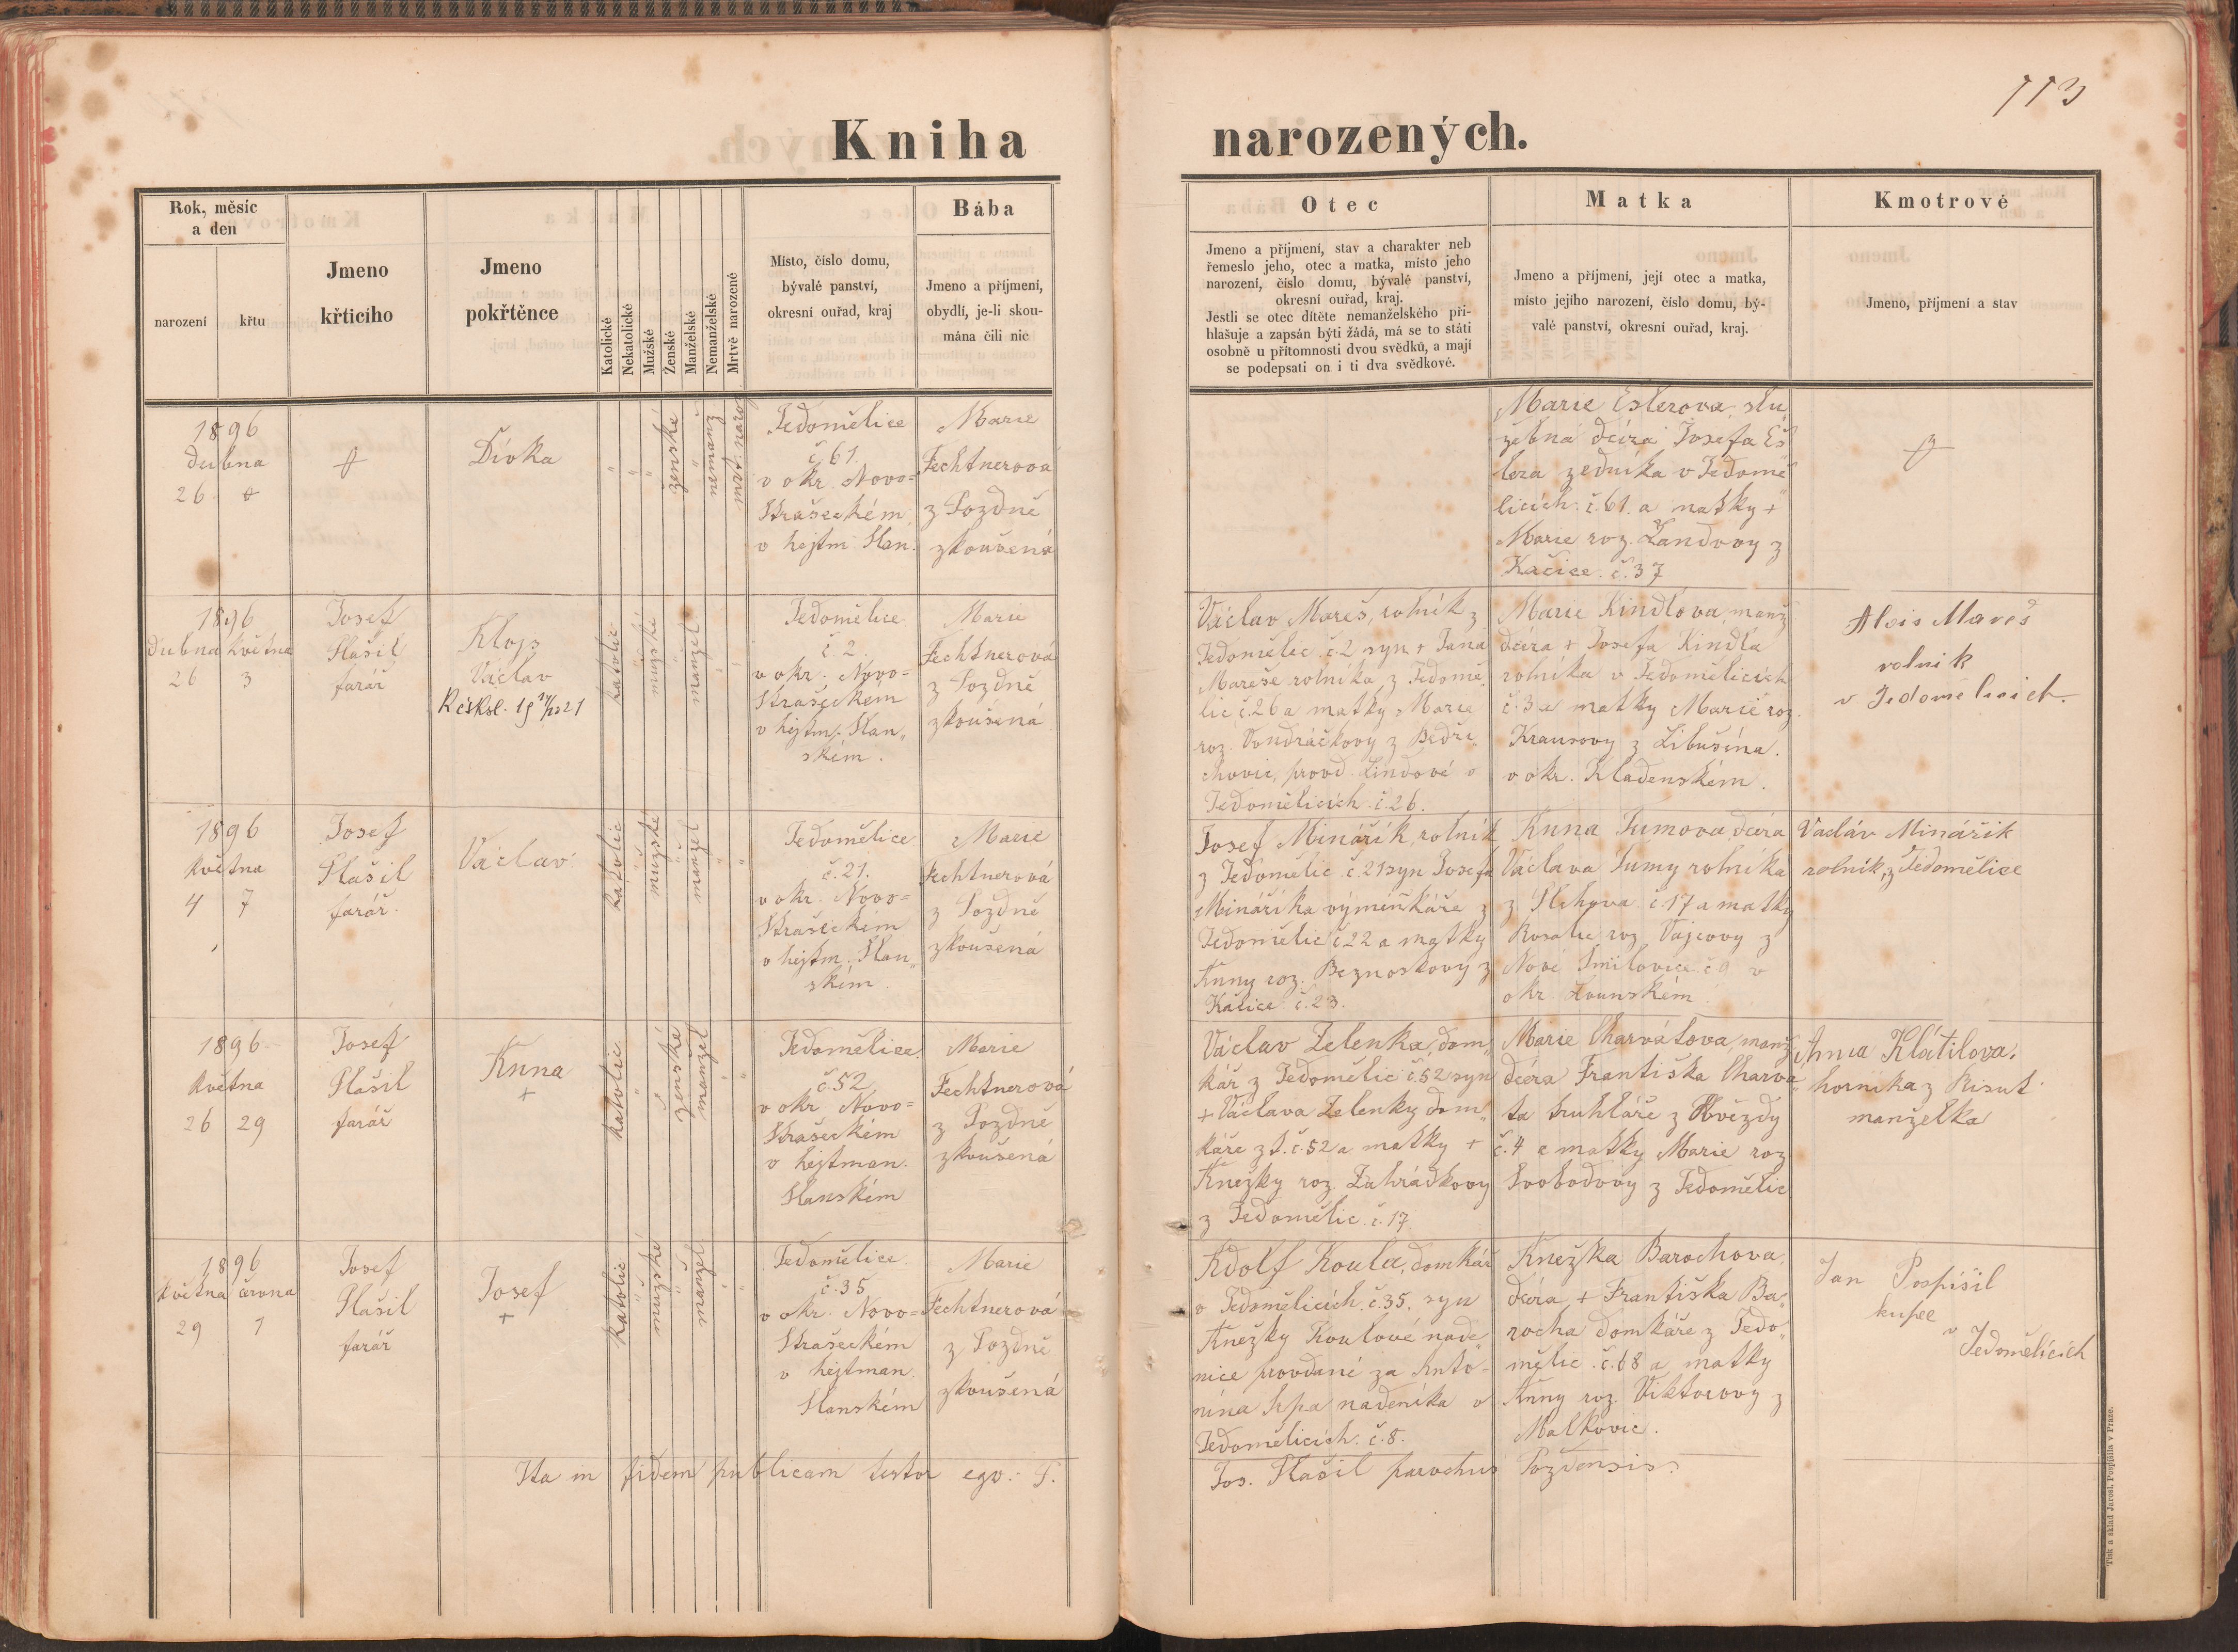 113
Kniha narozených.
Rok, měsíc
a den
narození
křtu
Jmeno
křticího
Jmeno
pokřtěnce
Katolické
Nekatolické
Mužské
Ženské
Manželské
Nemanželské
Mrtvě narozené
Místo, číslo domu,
bývalé panství,
okresní ouřad, kraj
Bába
Jmeno a příjmení,
obydlí, je-li skou-
mána čili nic
Otec
Jmeno a příjmení, stav a charakter neb
řemeslo jeho, otec a matka, místo jeho
narození, číslo domu, bývalé panství,
okresní ouřad, kraj.
Jestli se otec dítěte nemanželského při-
hlašuje a zapsán býti žádá, má se to státi
osobně u přítomnosti dvou svědků, a mají
se podepsati on i ti dva svědkové.
Matka
Jmeno a příjmení, její otec a matka,
místo jejího narození, číslo domu, bý-
valé panství, okresní ouřad, kraj.
Kmotrové
Jmeno, příjmení a stav
1896
dubna
26 +
Dívka
ženské
nemanž
mrt. naroz
Jedomělice
č. 61.
v okr. Novo-
Strašeckém
v hejtm. Slan.
Marie
Fechtnerová
z Pozdně
zkoušená
Marie Eslerova, slu
žebna dcera Josefa Eš
lera zedníka v Jedomě
licích č. 61. a matky +
Marie roz. Landovy z
Kačice č. 37
1896
dubna května
26 3
Josef
Plašil
farář
Alojs
Václav
katolic
mužské
manžel
Jedomělice
č. 2.
v okr. Novo-
Strašeckém
v hejtm. Slan„
ském.
Marie
Fechtnerová
z Pozdně
zkoušená
Václav Mareš, rolník z
Jedomělic č. 2 syn + Jana
Mareše rolníka z Jedomě
lic č. 26 a matky Marie
roz. Vondráčkovy z Bedři
chovic, provd. Lindové v
Jedomělicích č. 26.
Marie Kindlova, manž
dcera + Josefa Kindla
rolníka v Jedomělicích
č. 3 a matky Marie roz.
Krausovy z Libušína.
v okr. Kladenském.
Alois Mareš
rolník
v Jedomělicích.
1896
května
4 7
Josef
Plašil
farář.
Václav.
katolic
mužské
manžel
Jedomělice
č. 21.
v okr. Novo-
Strašeckém
v hejtm. Slan„
ském.
Marie
Fechtnerová
z Pozdně
zkoušená
Josef Minářík, rolník
z Jedomělic č. 21 syn Josefa
Minaříka výměnkáře z
Jedomělic č. 22 a matky
Anny roz. Beznoskovy z
Kačice č. 23.
Anna Tumova dcera
Václava Tumy rolníka
z Plchova č. 17 a matky
Rosalie roz. Vajcovy z
Nové Smilovice č. 9 v
okr. Lounském.
Václáv Minářik
rolník, z Jedomělice
1896
května
26 29
Josef
Plašil
farář
Anna
+
katolic
ženské
manžel
Jedomělice
č. 52
v okr. Novo-
Strašeckém
v hejtman.
Slanském
Marie
Fechtnerová
z Pozdně
zkoušená
Václav Zelenka, dom„
kář z Jedomělic č. 52 syn
+ Václava Zelenky dom„
káře z t. č. 52 a matky +
Anežky roz. Zahrádkovy
z Jedomělic č. 17
Marie Charvátova, manž
dcera Františka Charvá„
ta truhláře z Hvězdy
č. 4 a matky Marie roz
Svobodovy z Jedomělic
Anna Klátilova.
horníka z Řisut
manželka
1896
května června
29 1
Josef
Plašil
farář
Josef
+
katolic
mužské
manžel
Jedomělice
č. 35
v okr. Novo-
Strašeckém
v hejtman.
Slanském
Marie
Fechtnerová
z Pozdně
zkoušená
Adolf Koula, domkář
v Jedomělicích č. 35, syn
Anežky Koulové nade
nice provdané za Anto-
nína Kpa nadeníka v
Jedomělicích č. 8.
Anežka Barochova,
dcera + Františka Ba„
rocha domkáře z Jedo„
mělic č. 68 a matky
Anny roz. Viktorovy z
Malkovic.
Jan Pospíšil
kupec
v
Jedomělicích
Ita in fidem publicam testor ego: P. Jos. Plašil parochus Pozdensis.
Tisk a sklad Jarosl. Pospíšila v Praze.